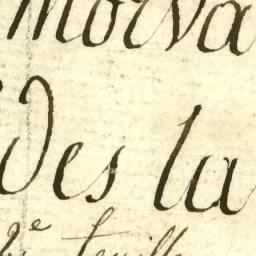 morva
des la
feuille